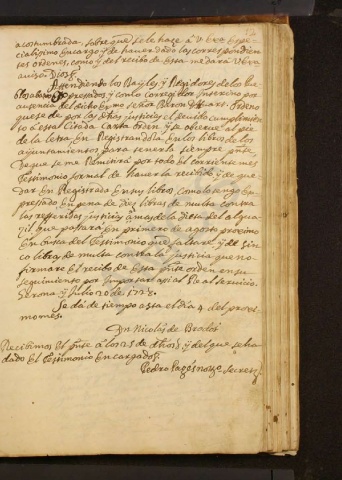 acostumbrada, sobre que se le haze a V. este espe-
cialissimo encargo y de haver dado las correspondien-
tes ordenes, como y del recibo de esta me dara V.
aviso. Dios &.
Attendiendo los Bayles y Regidores de los Pue-
blos abaxo expresados, y con lo Corregidor Interino por
ausencia del dicho mi señor Baron de Huart. Ordeno
que se de por las dhas justicias el devido cumplimien-
to a esta citada Carta orden, y se observe al pie
de la letra, en Registrandola en los libros de los
Ayuntamientos para tenerla siempre pnte,
de que se me Remitirá por todo el corriente mes
Testimonio formal de haverla recibido y de que-
dar en Registrada en sus libros, como lo tengo ex-
presado en pena de Diez libras de multa contra
las referidas justicias, â mas de la Dieta del algua-
zil que passará en primero de agosto proximo
en busca del Testimonio que faltare, y de Sin-
co libras de multa contra la justicia que no
firmare el recibo de esta pnte orden en su
seguimiento por Importar assi al Rl servicio.
Gerona y Julio 20 de 1728.
Se dá de tiempo asta el dia 4 del proxi-
mo mes.
Dn Nicolás de Bordós
Recibimos el pnte â los 25 de dhos y del que se ha
dado el Testimonio encargado.
Pedro Pagés notº Secretº